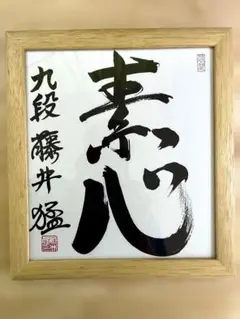 素心
九段 藤井猛